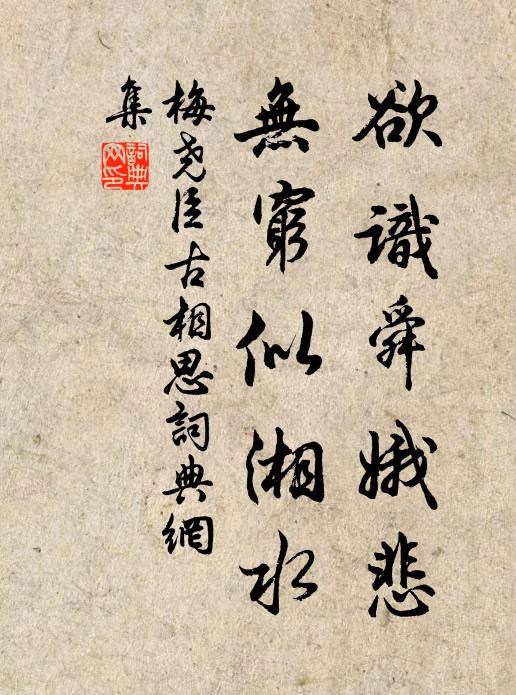 欲識舜娥悲
無窮似湘水
梅尧臣古相思詞典網
集
詞典
网印